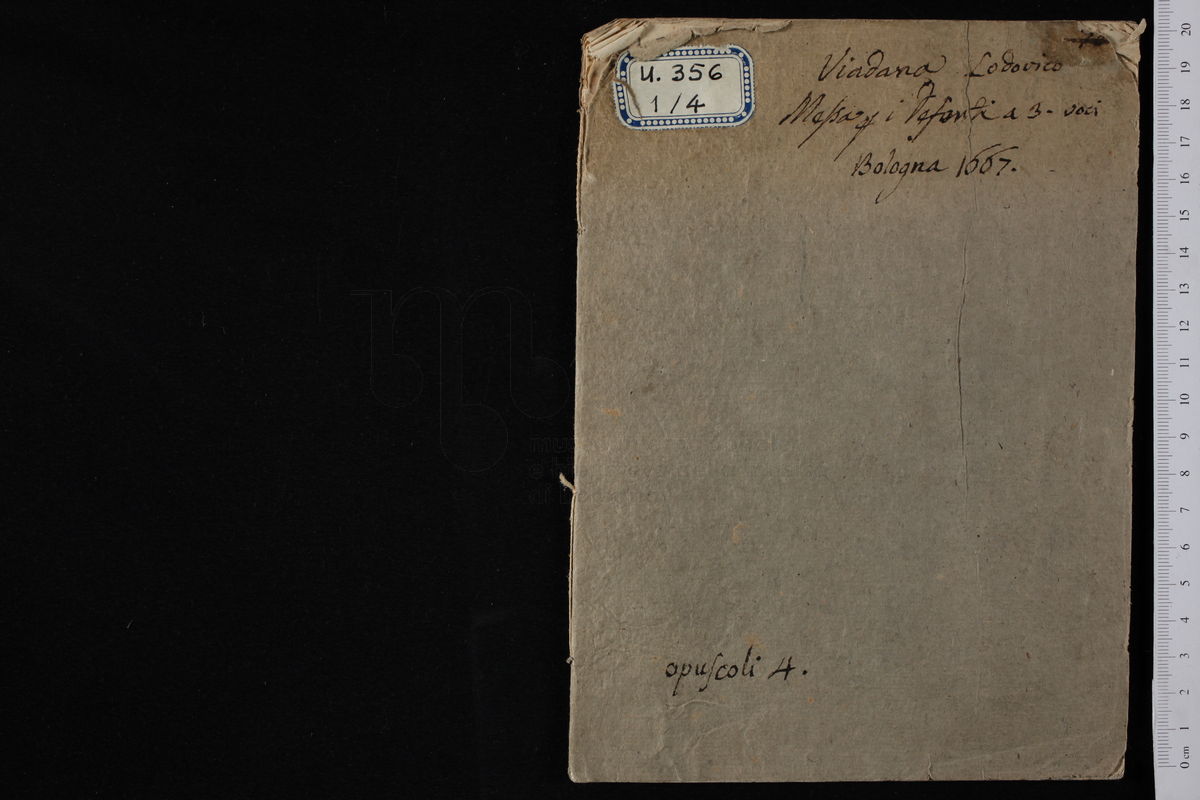 U. 356
1/4
Viadana Lodovico
Meſsa p i Defonti a 3- voci
Bologna 1667.
opuſcoli 4.
20
19
18
17
16
15
14
13
12
11
10
9
8
7
6
5
4
3
2
1
0 cm